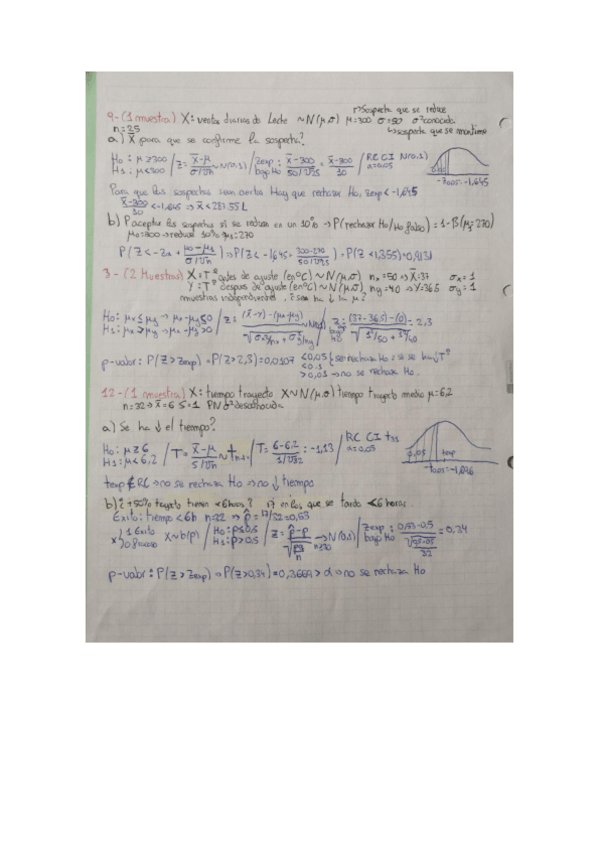 9-(1 muestra) X: ventas diarias de Leche ~N(μ,σ) μ=300 σ=50 σ² conocida
↱Sospecha que se reduce
↳sospecha que se mantiene
n=25
a) X̄ para que se confirme la sospecha?
H₀: μ≥300
H₁: μ<300 / Z= (X̄-μ)/(σ/√n) ~N(0,1) / Zexp bajo H₀ = (X̄-300)/(50/√25) = (X̄-300)/10 / RC CI N(0,1) α=0,05
-z0,05=-1,645
Para que las sospechas sean ciertas Hay que rechazar H₀, Zexp<-1,645
(X̄-300)/10 <-1,645 ⇒ X̄<283'55 L
b) P aceptar las sospechas si se reducen en un 10% → P(rechazar H₀/H₀ falso)=1-β(μ₁=270)
μ₀=300→reduce 10%=μ₁=270
P(Z<-zα + (μ₀-μ₁)/(σ/√n)) ⇒P(Z<-1,645+ (300-270)/(50/√25)) =P(Z<1,355)=0,9131
3-(2 Muestras) X=Tª antes de ajuste (en ºC) ~N(μ,σ) nₓ=50⇒X̄=37 σₓ=1
Y=Tª despues de ajuste (en ºC) ~N(μ,σ) ny=40⇒Ȳ=36'5 σy=1
muestras independientes. ¿se ha ↓ la μ?
H₀: μₓ≤μy → μₓ-μy≤0
H₁: μₓ>μy → μₓ-μy>0 / Z= ((X̄-Ȳ)-(μₓ-μy))/√(σ²ₓ/nₓ + σ²y/ny) ~N(0,1) / Z bajo H₀ = ((37-36'5)-(0))/√(1²/50 + 1²/40) = 2,3
p-valor: P(Z>Zexp)⇒P(Z>2,3)=0,0107 <0,05 se rechaza H₀⇒si se ha ↓Tª
<0,1
>0,01→no se rechaza H₀.
12-(1 muestra) X: tiempo trayecto X~N(μ,σ) tiempo trayecto medio μ=6,2
n=32→X̄=6 S=1 PN σ² desconocida
a) Se ha ↓ el tiempo?
H₀: μ≥6
H₁: μ<6,2 / T= (X̄-μ)/(S/√n) ~tn-1 / T= (6-6,2)/(1/√32) =-1,13 / RC CI α=0,05
0,05 texp
texp∉RC⇒no se rechaza H₀⇒no ↓ tiempo
b) ¿+50% trayecto tienen <6 horas? 17 en los que se tarda <6 horas.
Éxito: tiempo <6h n=32 ⇒ p̂=17/32=0,53
X 1 Exito
0 fracaso X~b(p) / H₀:p≤0,5
H₁:p>0,5 / Z= (p̂-p)/√(pq/n) →N(0,1) n≥30 / Zexp bajo H₀ = (0,53-0,5)/√(0,5·0,5/32) =0,34
p-valor: P(Z>Zexp)⇒P(Z>0,34)=0,3669>α⇒no se rechaza H₀